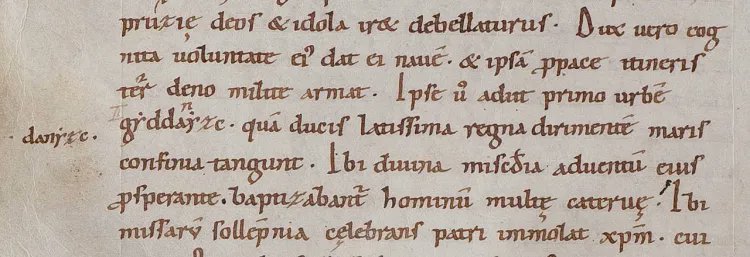 pruzie deos & idola iret debellaturus. Dux vero cog
nita voluntate ei' dat ei navē. & ipsā p pace itineris
ter deno milite armat. Ipse v̊ adiit primo urbē
gẏddanẏzc. quā ducis latissima regna dirimentē maris
danẏzc.
confinia tangunt. Ibi divina misc̄dia adventū eius
ꝓsperante. baptizabant̄ hominū multę catervę. Ibi
missarū sollēpnia cęlebrans patri immolat xpm̄. cui